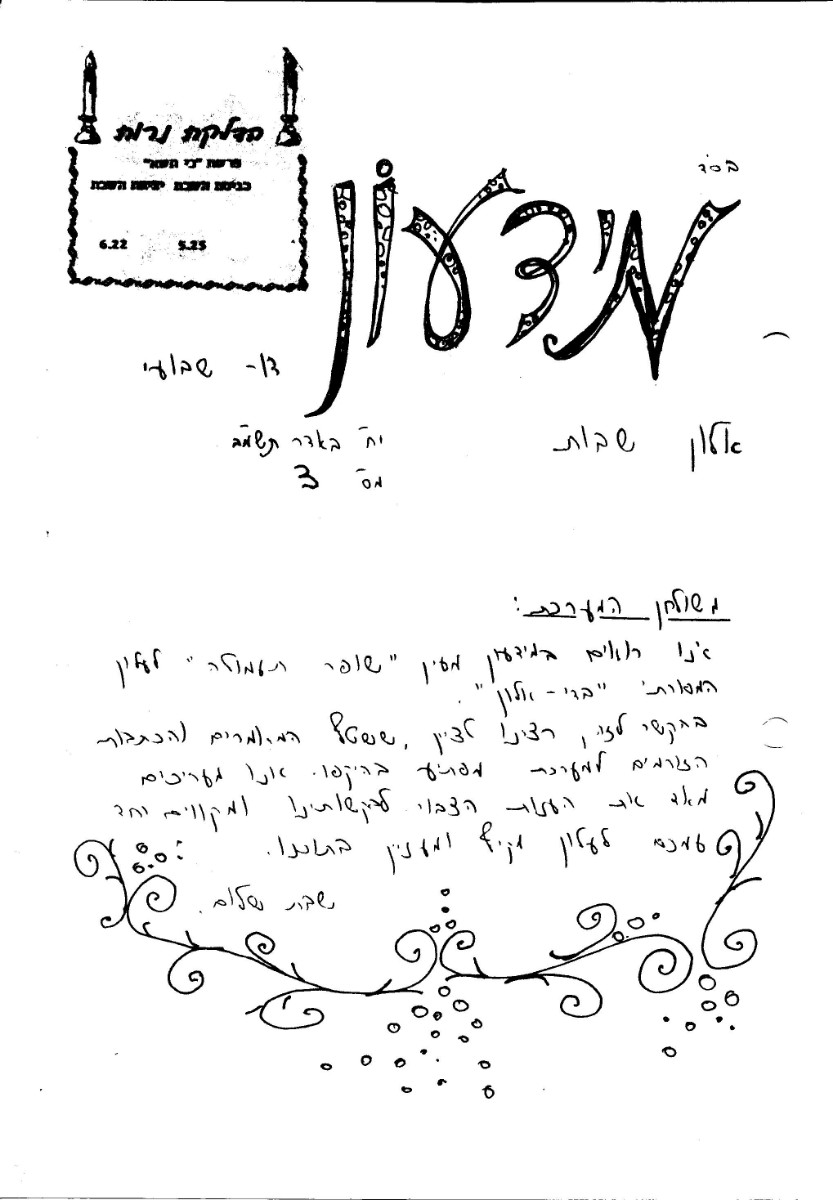 בס"ד
הדלקת נרות
פרשת "כי תשא"
כניסת השבת יציאת השבת
5.25 6.22
מידעון
דו - שבועי
אלון שבות
יח' באדר תשמ"ב
מס' 3
משולחן המערכת:
אנו רואים במידעון מעין "שופר תעמולה" לעלון
המסורתי "בדי-אלון".
בהקשר לזה, רצינו לציין, ששטף המאמרים והכתבות
הזורמים למערכת מפתיע בהיקפו. אנו מעריכים
מאד את הענות הצבור לבקשותינו ומקווים יחד
עמכם לעלון מקיף ומענין בתוכנו.
שבת שלום.